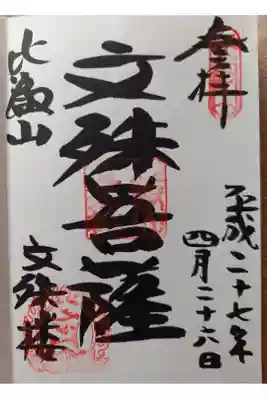 奉拝
平成二十七年
四月二十六日
文殊菩薩
比叡山
文殊楼